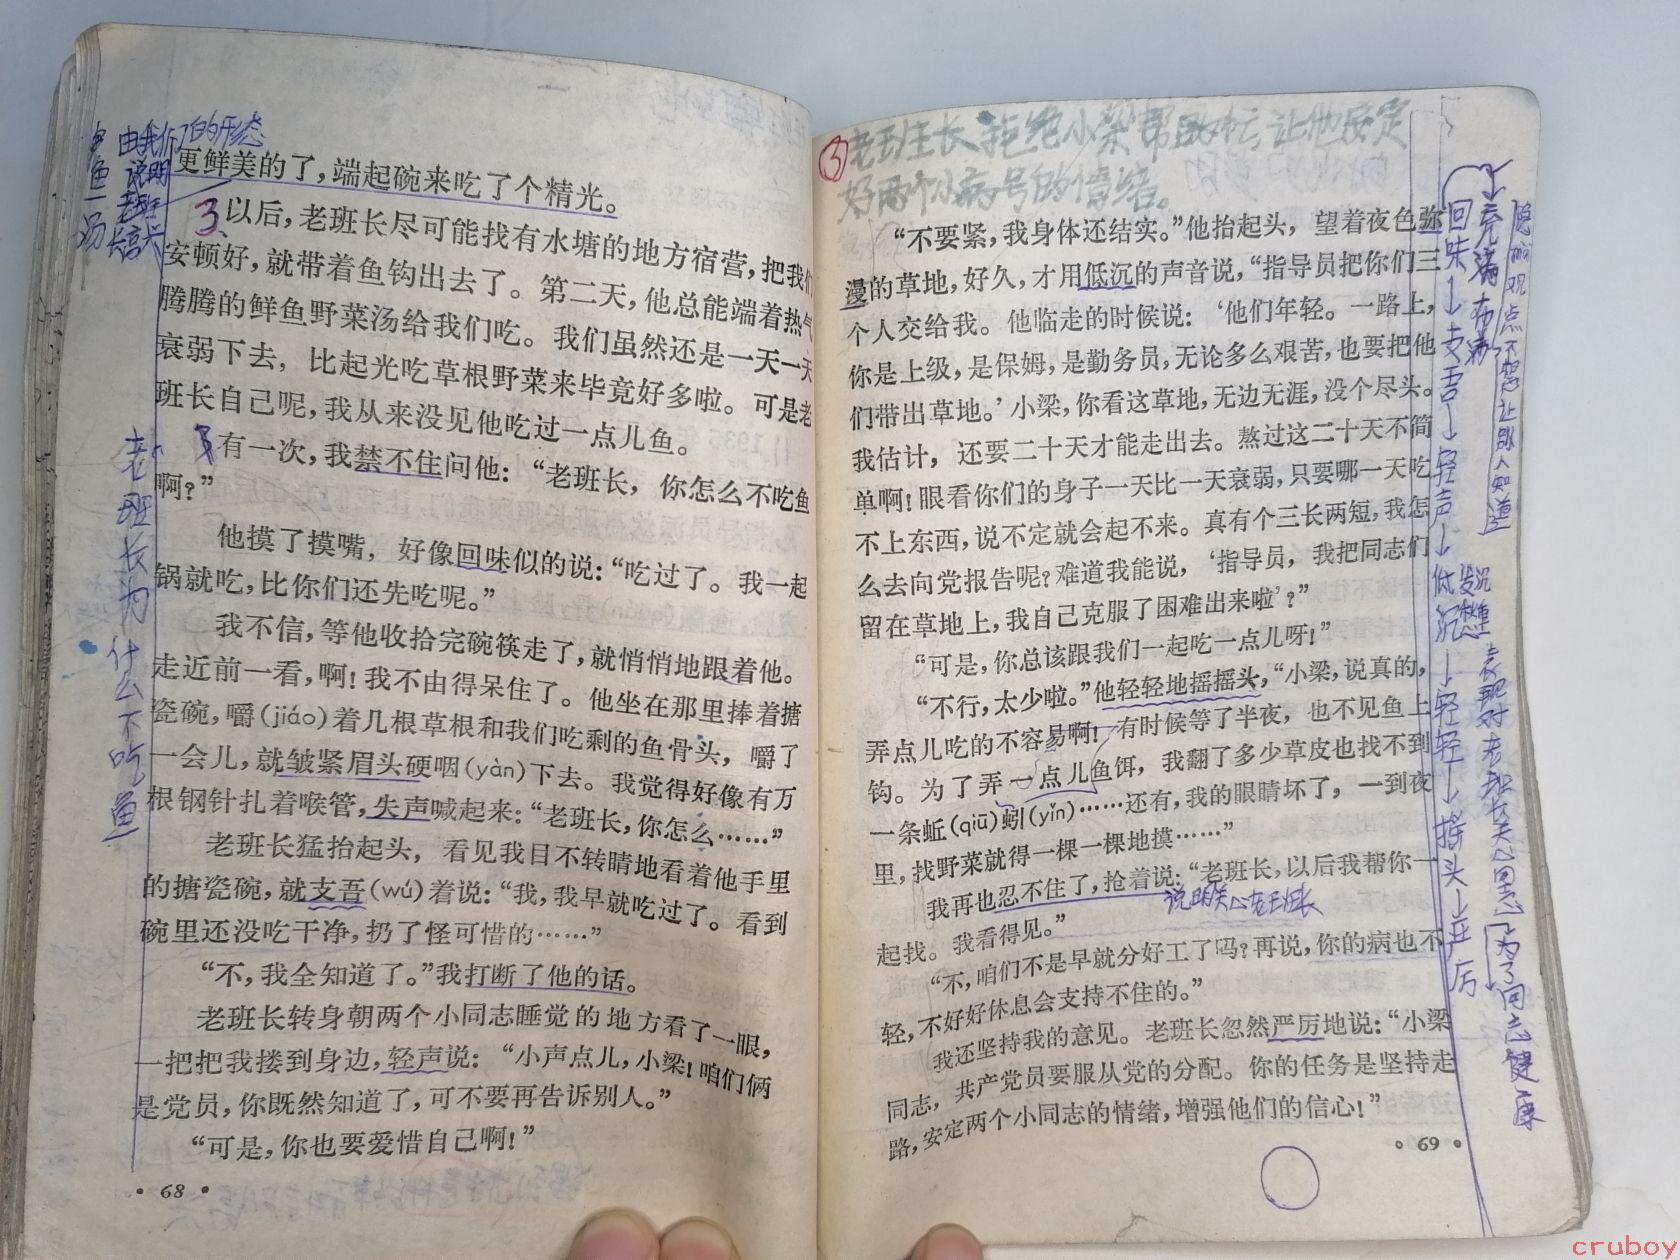 由我们了的形态
说明
老班
长高兴
鱼
汤
更鲜美的了，端起碗来吃了个精光。
3、以后，老班长尽可能找有水塘的地方宿营，把我们
安顿好，就带着鱼钩出去了。第二天，他总能端着热气
腾腾的鲜鱼野菜汤给我们吃。我们虽然还是一天一天
衰弱下去，比起光吃草根野菜来毕竟好多啦。可是老
班长自己呢，我从来没见他吃过一点儿鱼。
有一次，我禁不住问他：“老班长，你怎么不吃鱼
啊？”
他摸了摸嘴，好像回味似的说：“吃过了。我一起
锅就吃，比你们还先吃呢。”
我不信，等他收拾完碗筷走了，就悄悄地跟着他。
走近前一看，啊！我不由得呆住了。他坐在那里捧着搪
瓷碗，嚼(jiáo)着几根草根和我们吃剩的鱼骨头，嚼了
一会儿，就皱紧眉头硬咽(yàn)下去。我觉得好像有万
根钢针扎着喉管，失声喊起来：“老班长，你怎么……”
老班长猛抬起头，看见我目不转睛地看着他手里
的搪瓷碗，就支吾(wú)着说：“我，我早就吃过了。看到
碗里还没吃干净，扔了怪可惜的……”
“不，我全知道了。”我打断了他的话。
老班长转身朝两个小同志睡觉的地方看了一眼，
一把把我搂到身边，轻声说：“小声点儿，小梁！咱们俩
是党员，你既然知道了，可不要再告诉别人。”
“可是，你也要爱惜自己啊！”
• 68 •
老班长为什么不吃鱼
③老班长拒绝小梁帮助忙，让他安定
好两个小病号的情绪。
“不要紧，我身体还结实。”他抬起头，望着夜色弥
漫的草地，好久，才用低沉的声音说，“指导员把你们三
个人交给我。他临走的时候说：‘他们年轻。一路上，
你是上级，是保姆，是勤务员，无论多么艰苦，也要把他
们带出草地。’小梁，你看这草地，无边无涯，没个尽头。
我估计，还要二十天才能走出去。熬过这二十天不简
单啊！眼看你们的身子一天比一天衰弱，只要哪一天吃
不上东西，说不定就会起不来。真有个三长两短，我怎
么去向党报告呢？难道我能说，‘指导员，我把同志们
留在草地上，我自己克服了困难出来啦’？”
“可是，你总该跟我们一起吃一点儿呀！”
“不行，太少啦。”他轻轻地摇摇头，“小梁，说真的，
弄点儿吃的不容易啊！有时候等了半夜，也不见鱼上
钩。为了弄一点儿鱼饵，我翻了多少草皮也找不到
一条蚯(qiū)蚓(yǐn)……还有，我的眼睛坏了，一到夜
里，找野菜就得一棵一棵地摸……”
我再也忍不住了，抢着说：“老班长，以后我帮你一
说明关心老班长
起找。我看得见。”
“不，咱们不是早就分好工了吗？再说，你的病也不
轻，不好好休息会支持不住的。”
我还坚持我的意见。老班长忽然严厉地说：“小梁
同志，共产党员要服从党的分配。你的任务是坚持走
路，安定两个小同志的情绪，增强他们的信心！”
• 69 •
回味→支吾→轻声→低沉→轻轻→摇头→严厉
充满 布满
观点不想让别人知道
沉重
表现对老班长关心同志
为了同志健康
cruboy